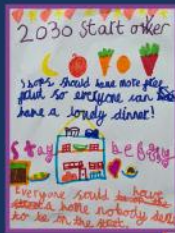 2030 Start over
Shops should have more free
food so everyone can
have a lovely dinner!
Stay
Everyone sould
a home nobody
to be in the street.